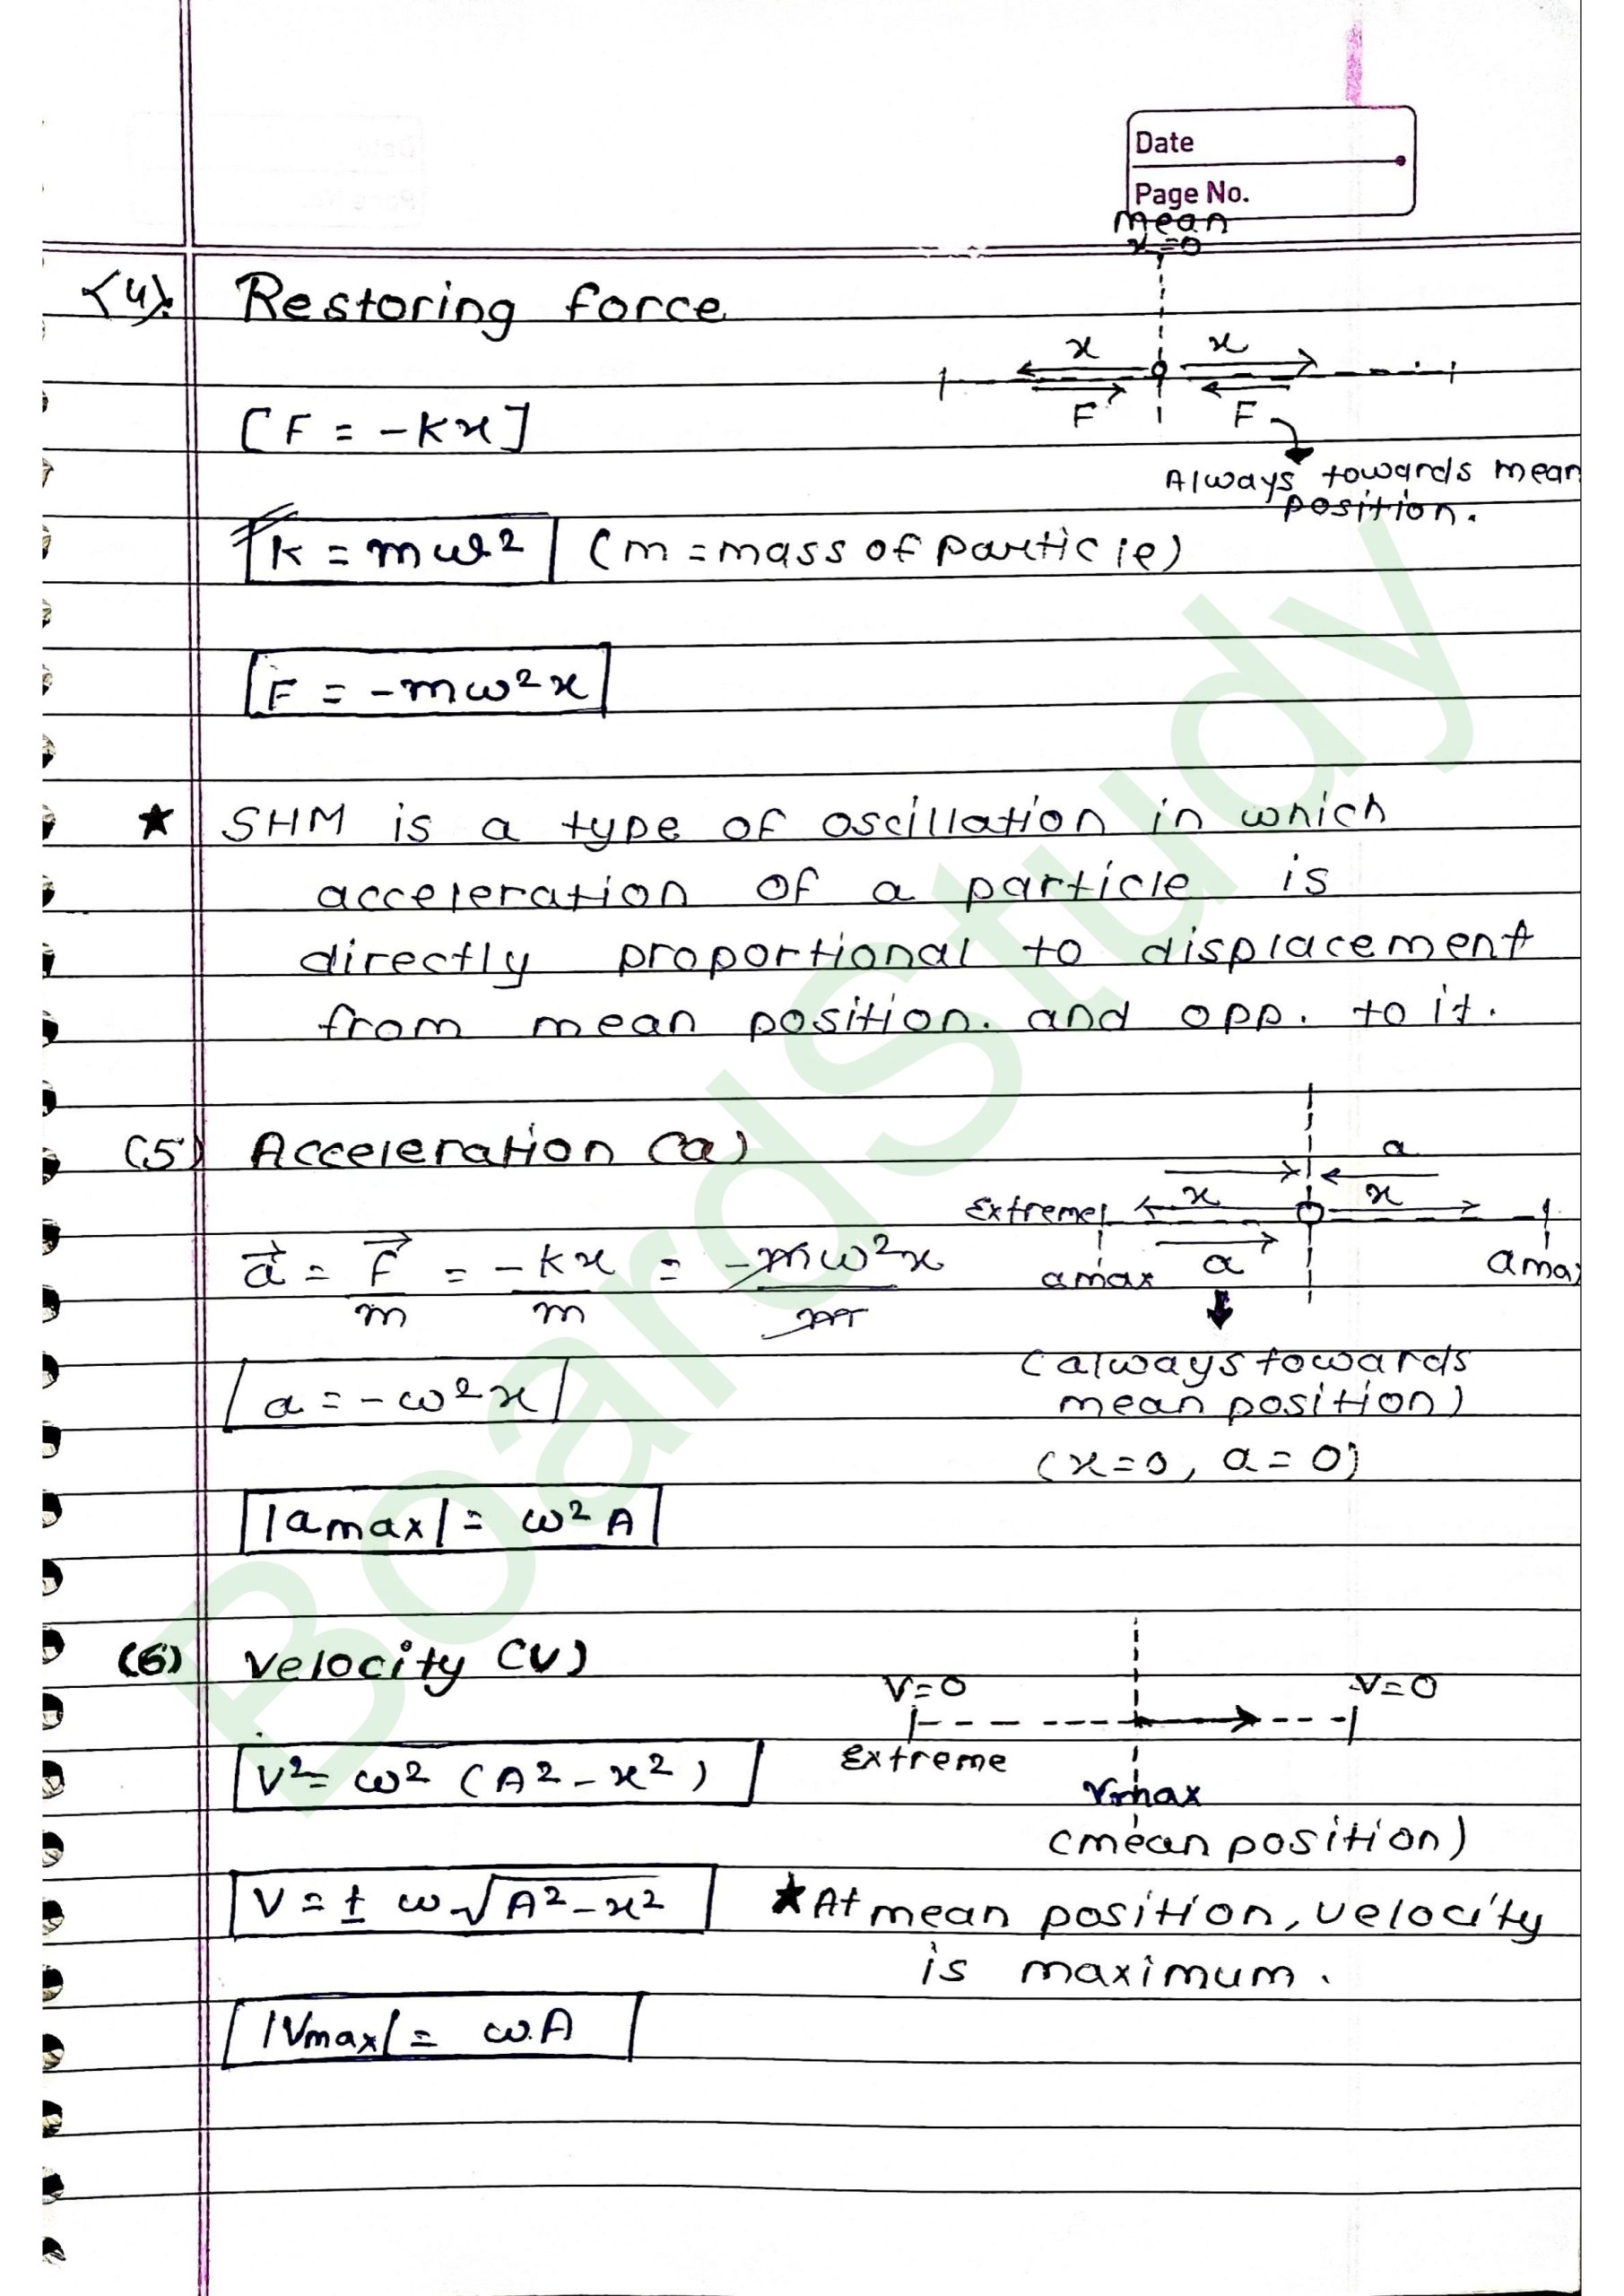 Date
Page No.
mean
x=0
(4). Restoring force
x x
F F
[F = -Kx]
Always towards mean
position.
K = mω² (m = mass of particle)
F = -mω²x
★ SHM is a type of oscillation in which
acceleration of a particle is
directly proportional to displacement
from mean position. and opp. to it.
(5) Acceleration (a)
a
Extreme x x
a⃗ = F⃗/m = -kx/m = -mω²x/m
amax a ama
a = -ω²x
(always towards
mean position)
(x=0, a=0)
|amax| = ω²A
(6) Velocity (V)
V=0 V=0
Extreme
V² = ω² (A² - x²)
Vmax
(mean position)
V = ± ω√A² - x²
★ At mean position, velocity
is maximum.
|Vmax| = ω.A
BoardStudy